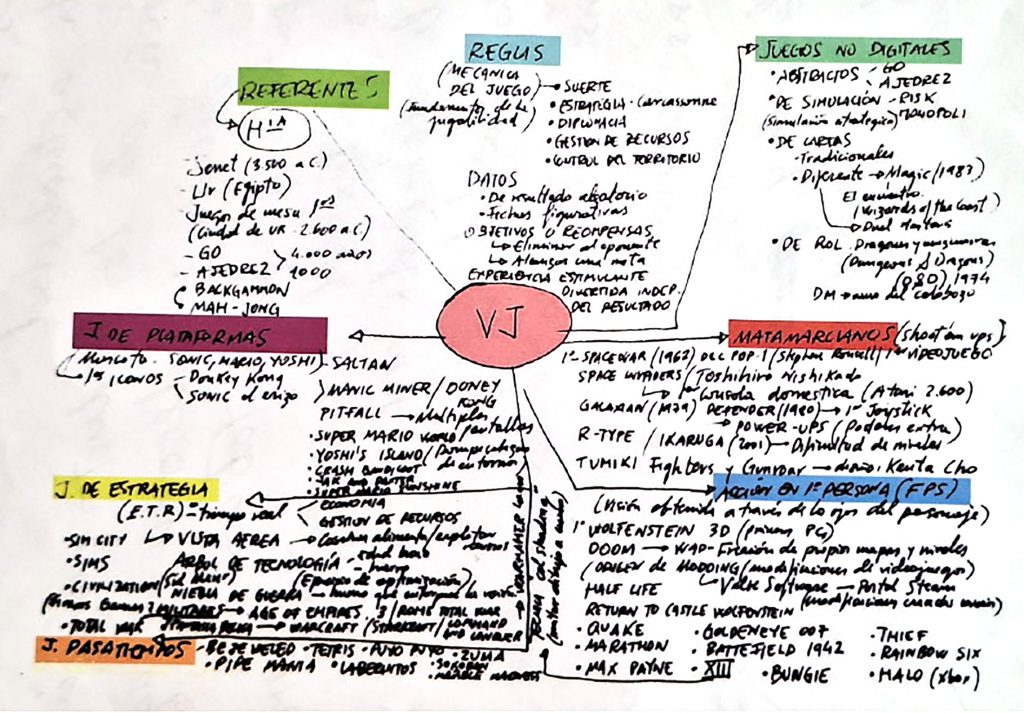 REFERENTES
Hª
Senet (3.500 a.C.)
Ur (Egipto)
Juegos de mesa 1ºs
(Ciudad de UR 2.600 a.C)
- GO
- AJEDREZ
4.000 años
1000
BACKGAMMON
MAH-JONG
REGLAS
(MECANICA
DEL JUEGO)
(fundamentos de la
jugabilidad)
SUERTE
• ESTRATEGIA - Carcassonne
• DIPLOMACIA
• GESTION DE RECURSOS
• CONTROL DEL TERRITORIO
DATOS
• De resultado aleatorio
• Fichas figurativas
OBJETIVOS O RECOMPENSAS
Eliminar al oponente
Alcanzar una meta
EXPERIENCIA ESTIMULANTE
DIVERTIDA INDEP.
DEL RESULTADO
JUEGOS NO DIGITALES
• ABSTRACTOS - GO
AJEDREZ
• DE SIMULACIÓN - RISK
(Simulación estrategica) MONOPOLI
• DE CARTAS
- Tradicionales
- Diferente → Magic (1983)
El encuentro
(Wizards of the Coast)
Duel Masters
• DE ROL. Dragones y mazmorras
(Dungeons & Dragons)
(D&D) 1974
DM → amo del calabozo
VJ
J. DE PLATAFORMAS
Mascota. SONIC, MARIO, YOSHI) - SALTAN
1ºs ICONOS - Donkey Kong
SONIC el erizo
MANIC MINER / DONEY
KONG
PITFALL → Múltiples
pantallas
• SUPER MARIO WORLD
• YOSHI'S ISLAND /
• CRASH BANDICOOT
• JAK AND DAXTER
• SUPER MARIO SUNSHINE
MATAMARCIANOS (shoot'em ups)
1º SPACEWAR (1962) DEC PDP-1 / Stephen Russell / 1º VIDEOJUEGO
SPACE INVADERS / Toshihiro Nishikado
1º Consola domestica (Atari 2.600)
GALAXIAN (1979) DEFENDER (1980) → 1º Joystick
POWER-UPS (Poderes extra)
R-TYPE / IKARUGA (2001) - Dificultad de niveles
TUMIKI Fighters y Gunroar → diseño: Kenta Cho
J. DE ESTRATEGIA
(E.T.R) = tiempo real
ECONOMIA
GESTION DE RECURSOS
• SIM CITY
VISTA AEREA → Conseguir alimento/explotar
• SIMS
ARBOL DE TECNOLOGÍA
• CIVILIZATION (Sid Meier)
NIEBLA DE GUERRA
MILITARES → AGE OF EMPIRES 3 / ROME TOTAL WAR
• TOTAL WAR
WARCRAFT / STARCRAFT / COMMAND
AND CONQUER
WARHAMMER
FRAMA cel shading
ACCIÓN EN 1ª PERSONA (FPS)
(Visión obtenida a través de los ojos del personaje)
1º WOLFENSTEIN 3D (primer PC)
DOOM → WAD - Creación de propios mapas y niveles
(ORIGEN DE MODDING / modificaciones de videojuegos)
HALF LIFE
Valve Software → Portal Steam
RETURN TO CASTLE WOLFENSTEIN
• QUAKE
• GOLDENEYE 007
• THIEF
• MARATHON
• BATTEFIELD 1942
• RAINBOW SIX
• MAX PAYNE
• XIII
• BUNGIE
• HALO (Xbox)
J. PASATIEMPOS
- BEJEWELED
- TETRIS
- PUYO PUYO
• ZUMA
• PIPE MANIA
• LABERINTOS
• SOKOBAN
• MARBLE MADNESS